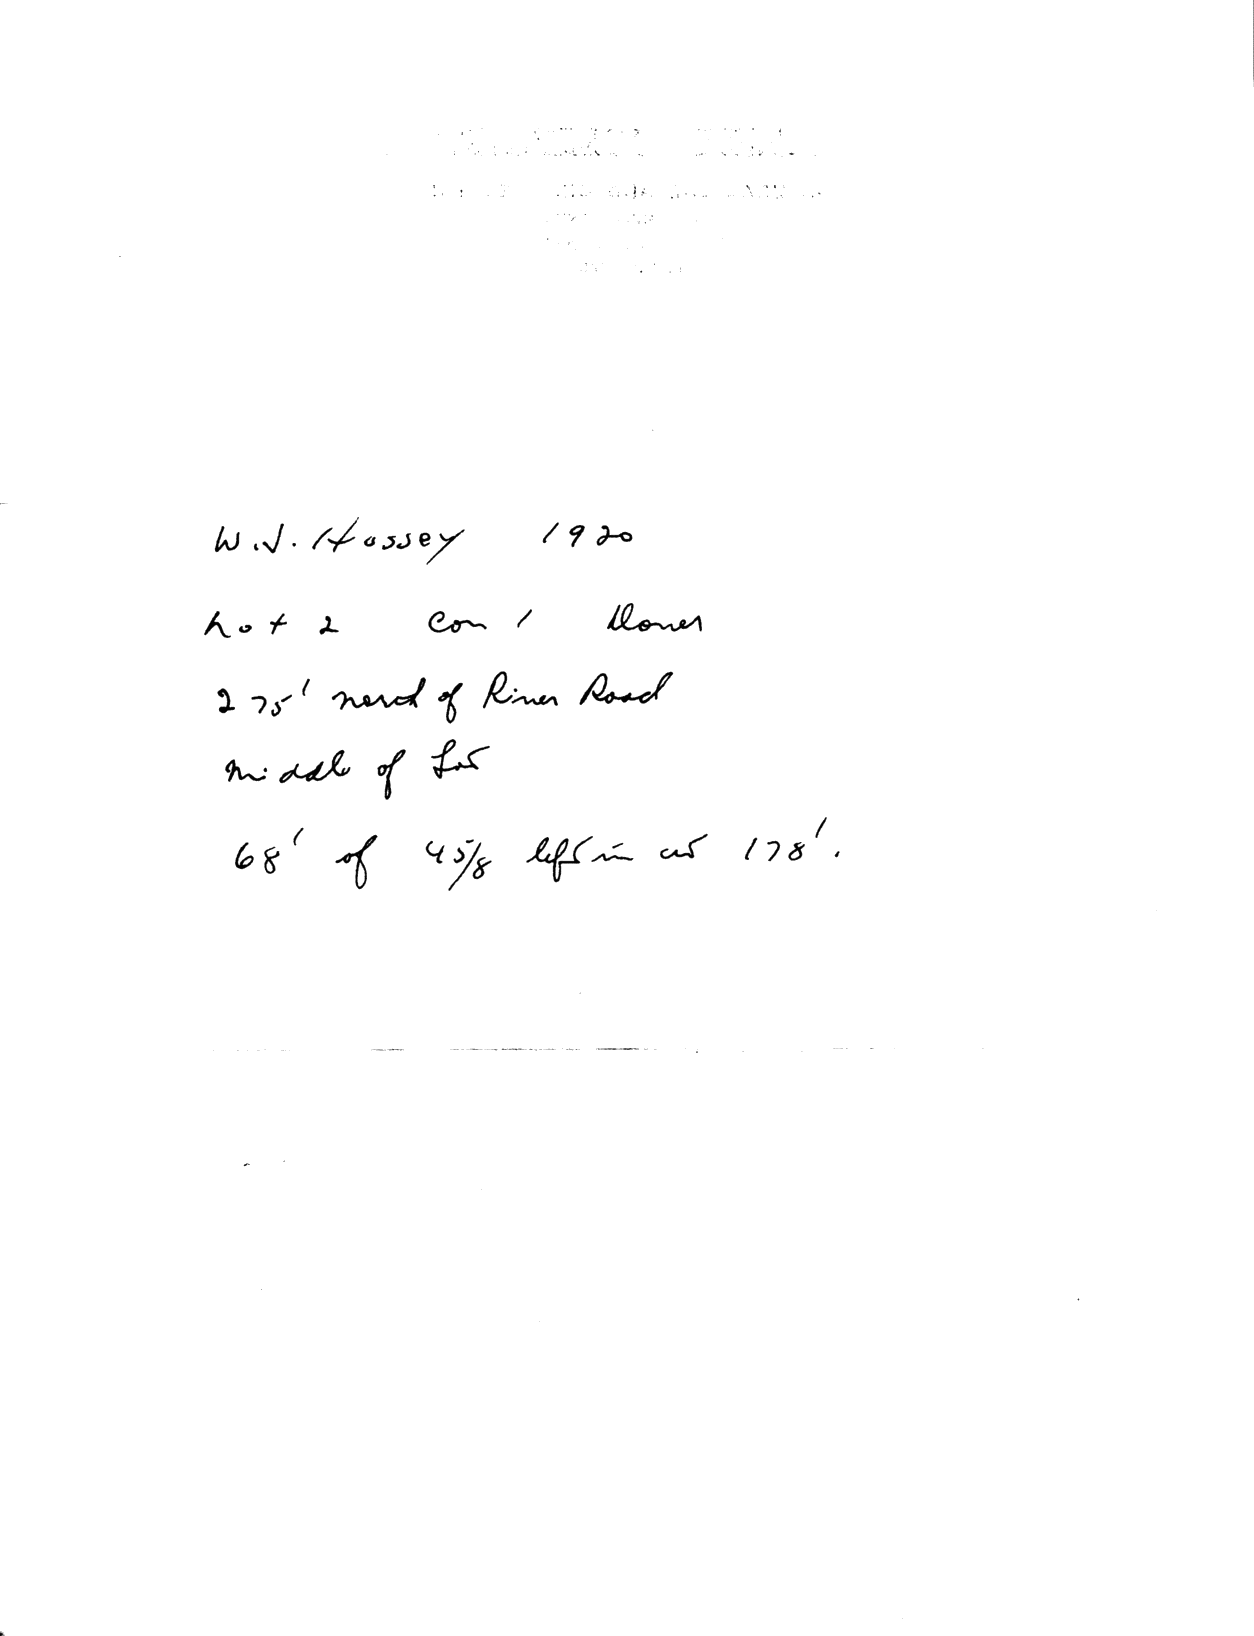 W.J. Hossey 1920
Lot 2 Con 1 Dover
275' north of River Road
Middle of Lot
68' of 4 5/8 left in at 178'.